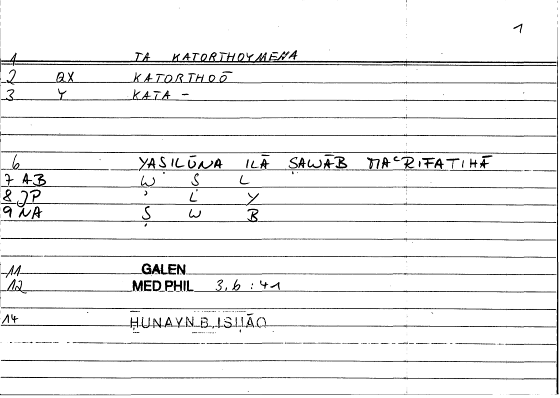 1
1 TA KATORTHOYMENA
2 QX KATORTHOŌ
3 Y KATA -
6 YAṢILŪNA ILĀ ṢAWĀB MAᶜRIFATIHĀ
7 AB W Ṣ L
8 JP ʾ L Y
9 NA Ṣ W B
11 GALEN
12 MED.PHIL 3,6 : 41
14 ḤUNAYN B. ISḤĀQ